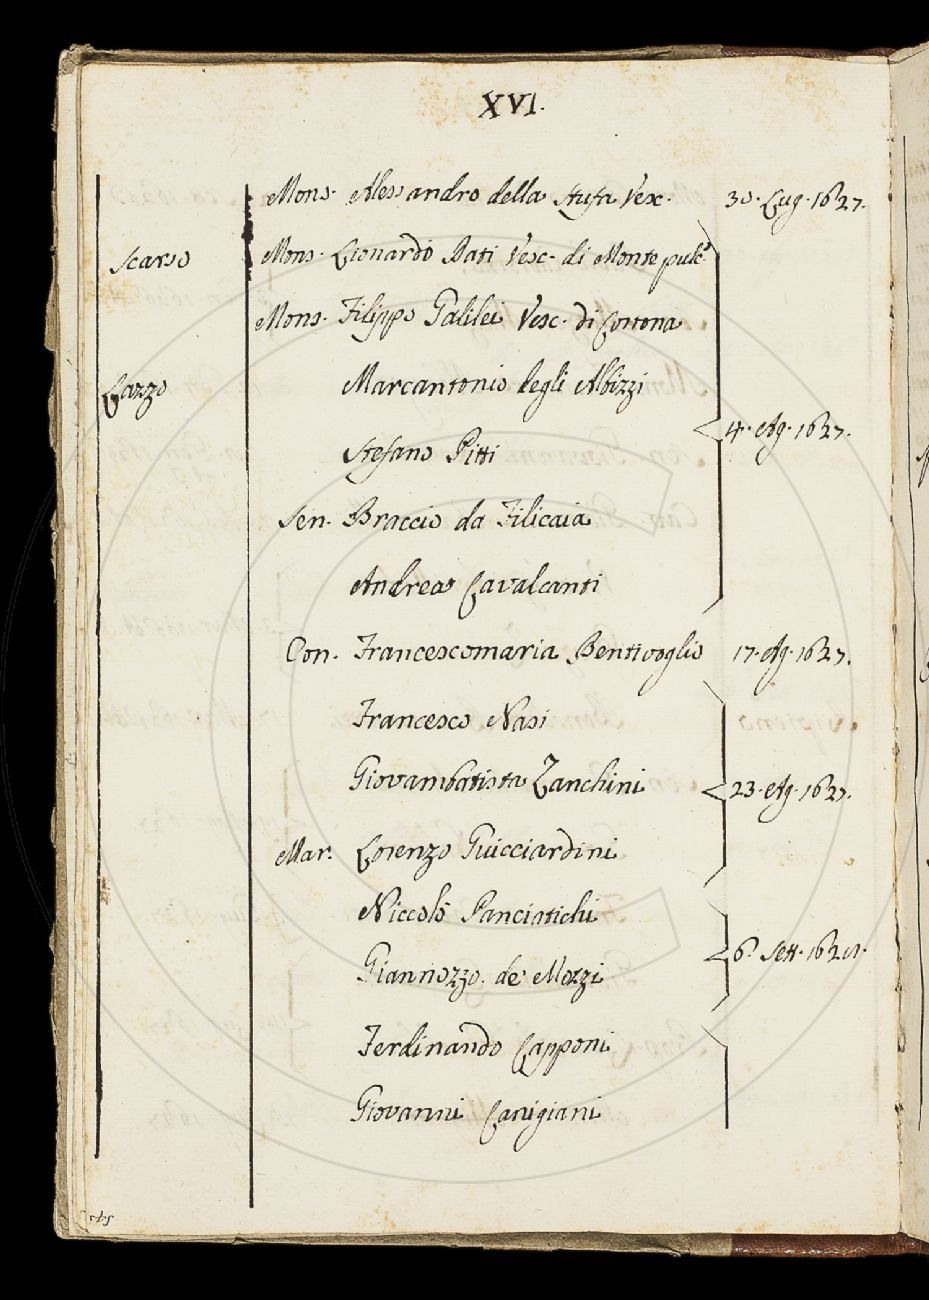 XVI.
Mons. Alessandro della Stufa Vesc. 30. Lug. 1627.
Scarso Mons. Lionardo Dati Vesc. di Monte pulc.
Mons. Filippo Galilei Vesc. di Cortona
Gazzo Marcantonio degli Albizzi
4. Ag. 1627.
Stefano Pitti
Sen. Braccio da Filicaia
Andrea Cavalcanti
Con. Francescomaria Bentivoglio 17. Ag. 1627.
Francesco Nasi
Giovambatista Zanchini 23. Ag. 1627.
Mar. Lorenzo Guicciardini
Niccolò Panciatichi
6. Sett.
Giannozzo de Mozzi
Ferdinando Capponi
Giovanni Canigiani